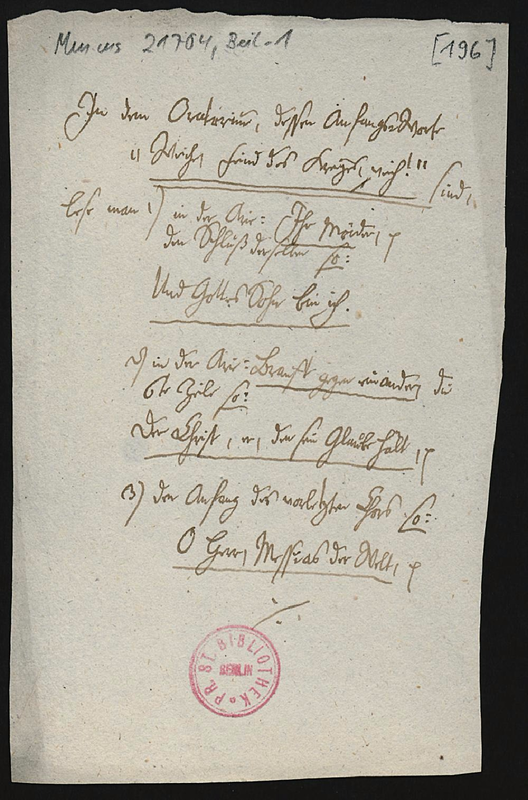 Mus. ms 21704, Beil. 1
[196]
In dem Oratorium, dessen Anfangs-Worte
"Weiche, Feind des Kreuzes, weich!" sind,
lese man 1) in der Arie: Ihr Mörder,
den Schluß derselben so:
Und Gottes Sohn bin ich.
2) in der Arie: Braust gegen einander, die
6te Zeile so:
Der Christ, er, den sein Glaube hält,
3) den Anfang des vorletzten Chors so:
O Herr, Messias der Welt,
PR. ST. BIBLIOTHEK
BERLIN